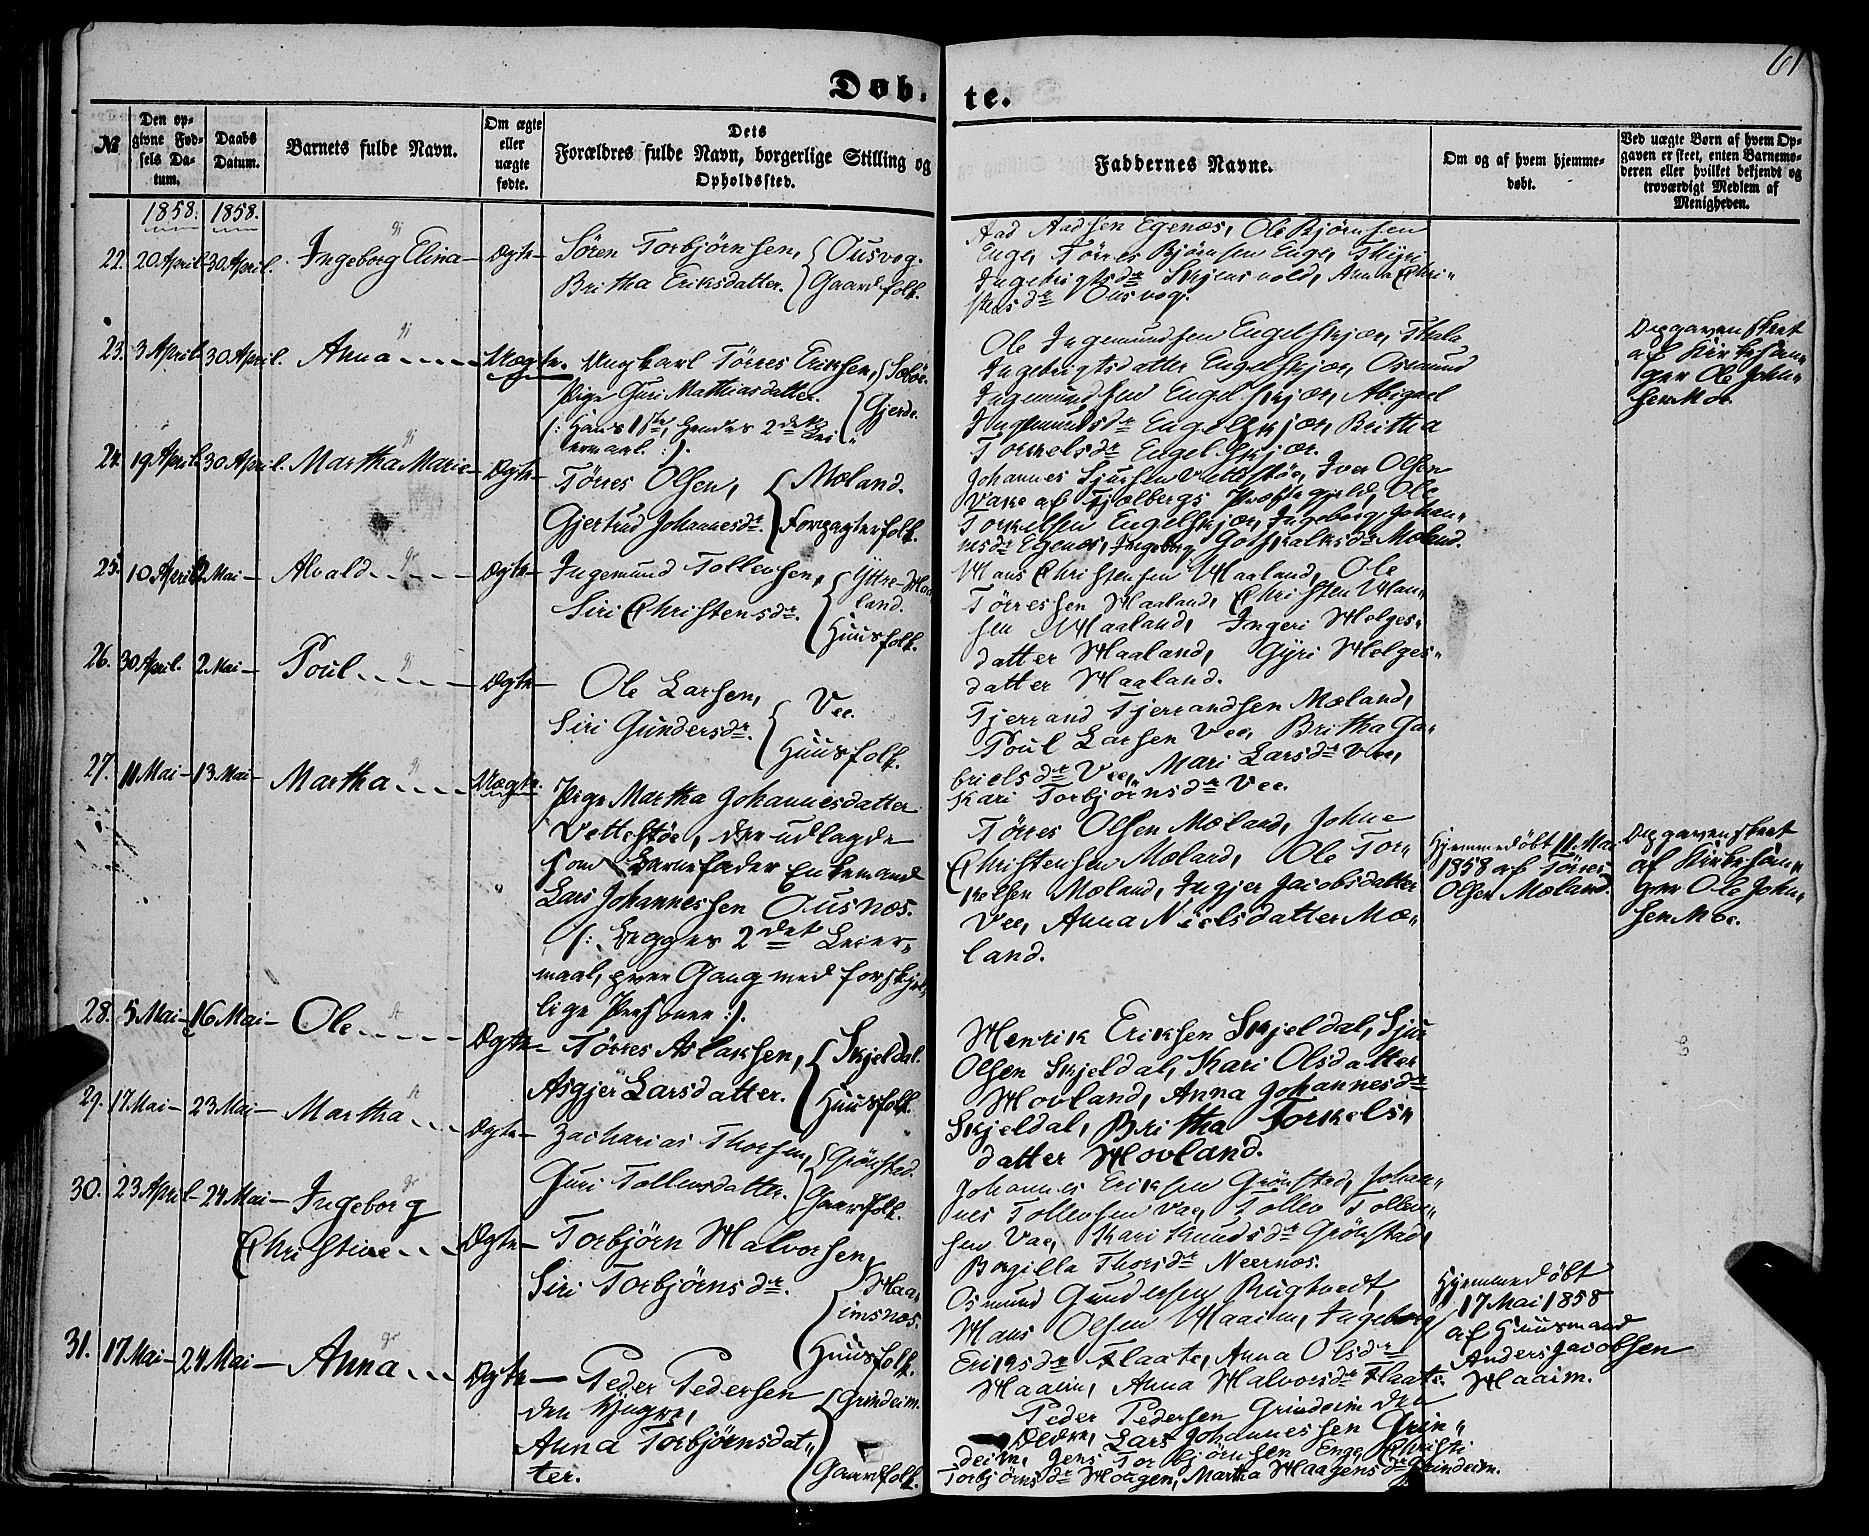 61
Døb- te.
№
Den op-
givne Fød-
sels Da-
tum.
Daabs
Datum.
Barnets fulde Navn.
Om ægte
eller
uægte
fødte.
Dets
Forældres fulde Navn, borgerlige Stilling og
Opholdssted.
Faddernes Navne.
Om og af hvem hjemme-
døbt.
Ved uægte Børn af hvem Op-
gaven er skeet, enten Barnemo-
deren eller hvilket bekjendt og
troværdigt Medlem af
Menigheden.
1858. 1858.
22. 20 April 30 April. Ingeborg Elina Ægte
Sören Torbjörnsen, Ousvog.
Britha Eriksdatter. Gaardfolk.
Aad Aadsen Egenæs, Ole Björnsen
Enge, Törres Björnsen Enge,
Ingebrigtsdr Skjensvold, Anna Chri-
stensdr Ousvog.
23. 3 April 30 April. Anna Uægte.
Ungkarl Törres Eriksen, Sæböe.
Pige Guri Mathiasdatter. Gjerde.
(: Hans 1ste, hendes 2det Lei-
ermaal. :).
Ole Ingemundsen Engelskjær,
Ingebrigtsdatter Engelskjær, Osmund
Ingemundsen Engelskjær, Abigael
Ingemundsdr Engelskjær, Britha
Torkelsdr Engelskjær.
Opgaven skeet
af Kirkesan-
ger Ole John-
sen Moe.
24. 19 April 30 April. Martha Marie Ægte
Törres Olsen, Mæland.
Gjertrud Johannesdr. Forpagterfolk.
Johannes Sjursen Vettestöe, Iver Olsen
af Fjelbergs Præstegjeld, Ole
Torkelsen Engelskjær, Ingeborg Johan-
nesdr Egenæs, Ingeborg Gotskalksdr Mæland.
25. 10 April 2 Mai Alvald Ægte
Ingemund Tollevsen, Yttre-Haa-
land.
Siri Christensdr. Huusfolk.
Hans Christensen Haaland, Ole
Törressen Haaland, Christen Han-
sen Haaland, Ingeri Helges-
datter Haaland, Gyri Helges-
datter Haaland.
26. 30 April. 2 Mai Poul Ægte
Ole Larsen, Vee.
Siri Gundersdr. Huusfolk.
Tjerrand Tjerrandsen Mæland,
Poul Larsen Vee, Britha Ga-
brielsdr Vee, Mari Larsdr Vee,
Kari Torbjörnsdr Vee.
27. 11 Mai 13 Mai Martha Uægte.
Pige Martha Johannesdatter
Vettestöe, der udlagde
som Barnefader Enkemand
Lars Johannessen Ousnæs.
(: begges 2det Leier-
maal, hver Gang med forskjel-
lige Personer :).
Törres Olsen Mæland, Johne
Christensen Mæland, Ole Tor-
kelsen Mæland, Ingjer Jacobsdatter
Vee, Anna Nielsdatter Mæ-
land.
Hjemmedöbt 11 Mai
1858 af Törres
Olsen Mæland.
Opgaven skeet
af Kirkesan-
ger Ole John-
sen Moe.
28. 5 Mai 16 Mai Ole Ægte
Törres Aslaksen, Skjeldal.
Asgjer Larsdatter. Huusfolk.
Henrik Eriksen Skjeldal, Sjur
Olsen Skjeldal, Kari Olsdatter
Hovland, Anna Johannesdr
Skjeldal, Britha Torkels-
datter Hovland.
29. 17 Mai 23 Mai Martha Ægte
Zacharias Thorsen, Grönsted.
Guri Tollevsdatter. Gaardfolk.
Johannes Eriksen Grönstad, Johan-
nes Tollevsen Vae, Tollev Tollev-
sen Vae, Kari Knudsdr Grönstad,
Borgilla Thorsdr Neernæs.
30. 23 April 24 Mai Ingeborg
Christine Ægte
Torbjörn Halvorsen,
Siri Torbjörnsdr. Haa-
imsnæs.
Huusfolk.
Osmund Gundersen Rugtvedt,
Hans Olsen Haaim, Ingeborg
Eriksdr Flaate, Anna Olsdr
Haaim, Anna Halvorsdr Flaate.
Hjemmedöbt
17 Mai 1858
af Huusmand
Anders Jacobsen
Haaim.
31. 17 Mai 24 Mai Anna Ægte
Peder Pedersen
den Yngre, Grindeim.
Anna Torbjörnsdat-
ter. Gaardfolk.
Peder Pedersen Grindeim den
Ældre, Lars Johannessen Grin-
deim, Jens Torbjörnsen Enge, Christi
Torbjörnsdr Horgen, Martha Haagensdr Grindeim.